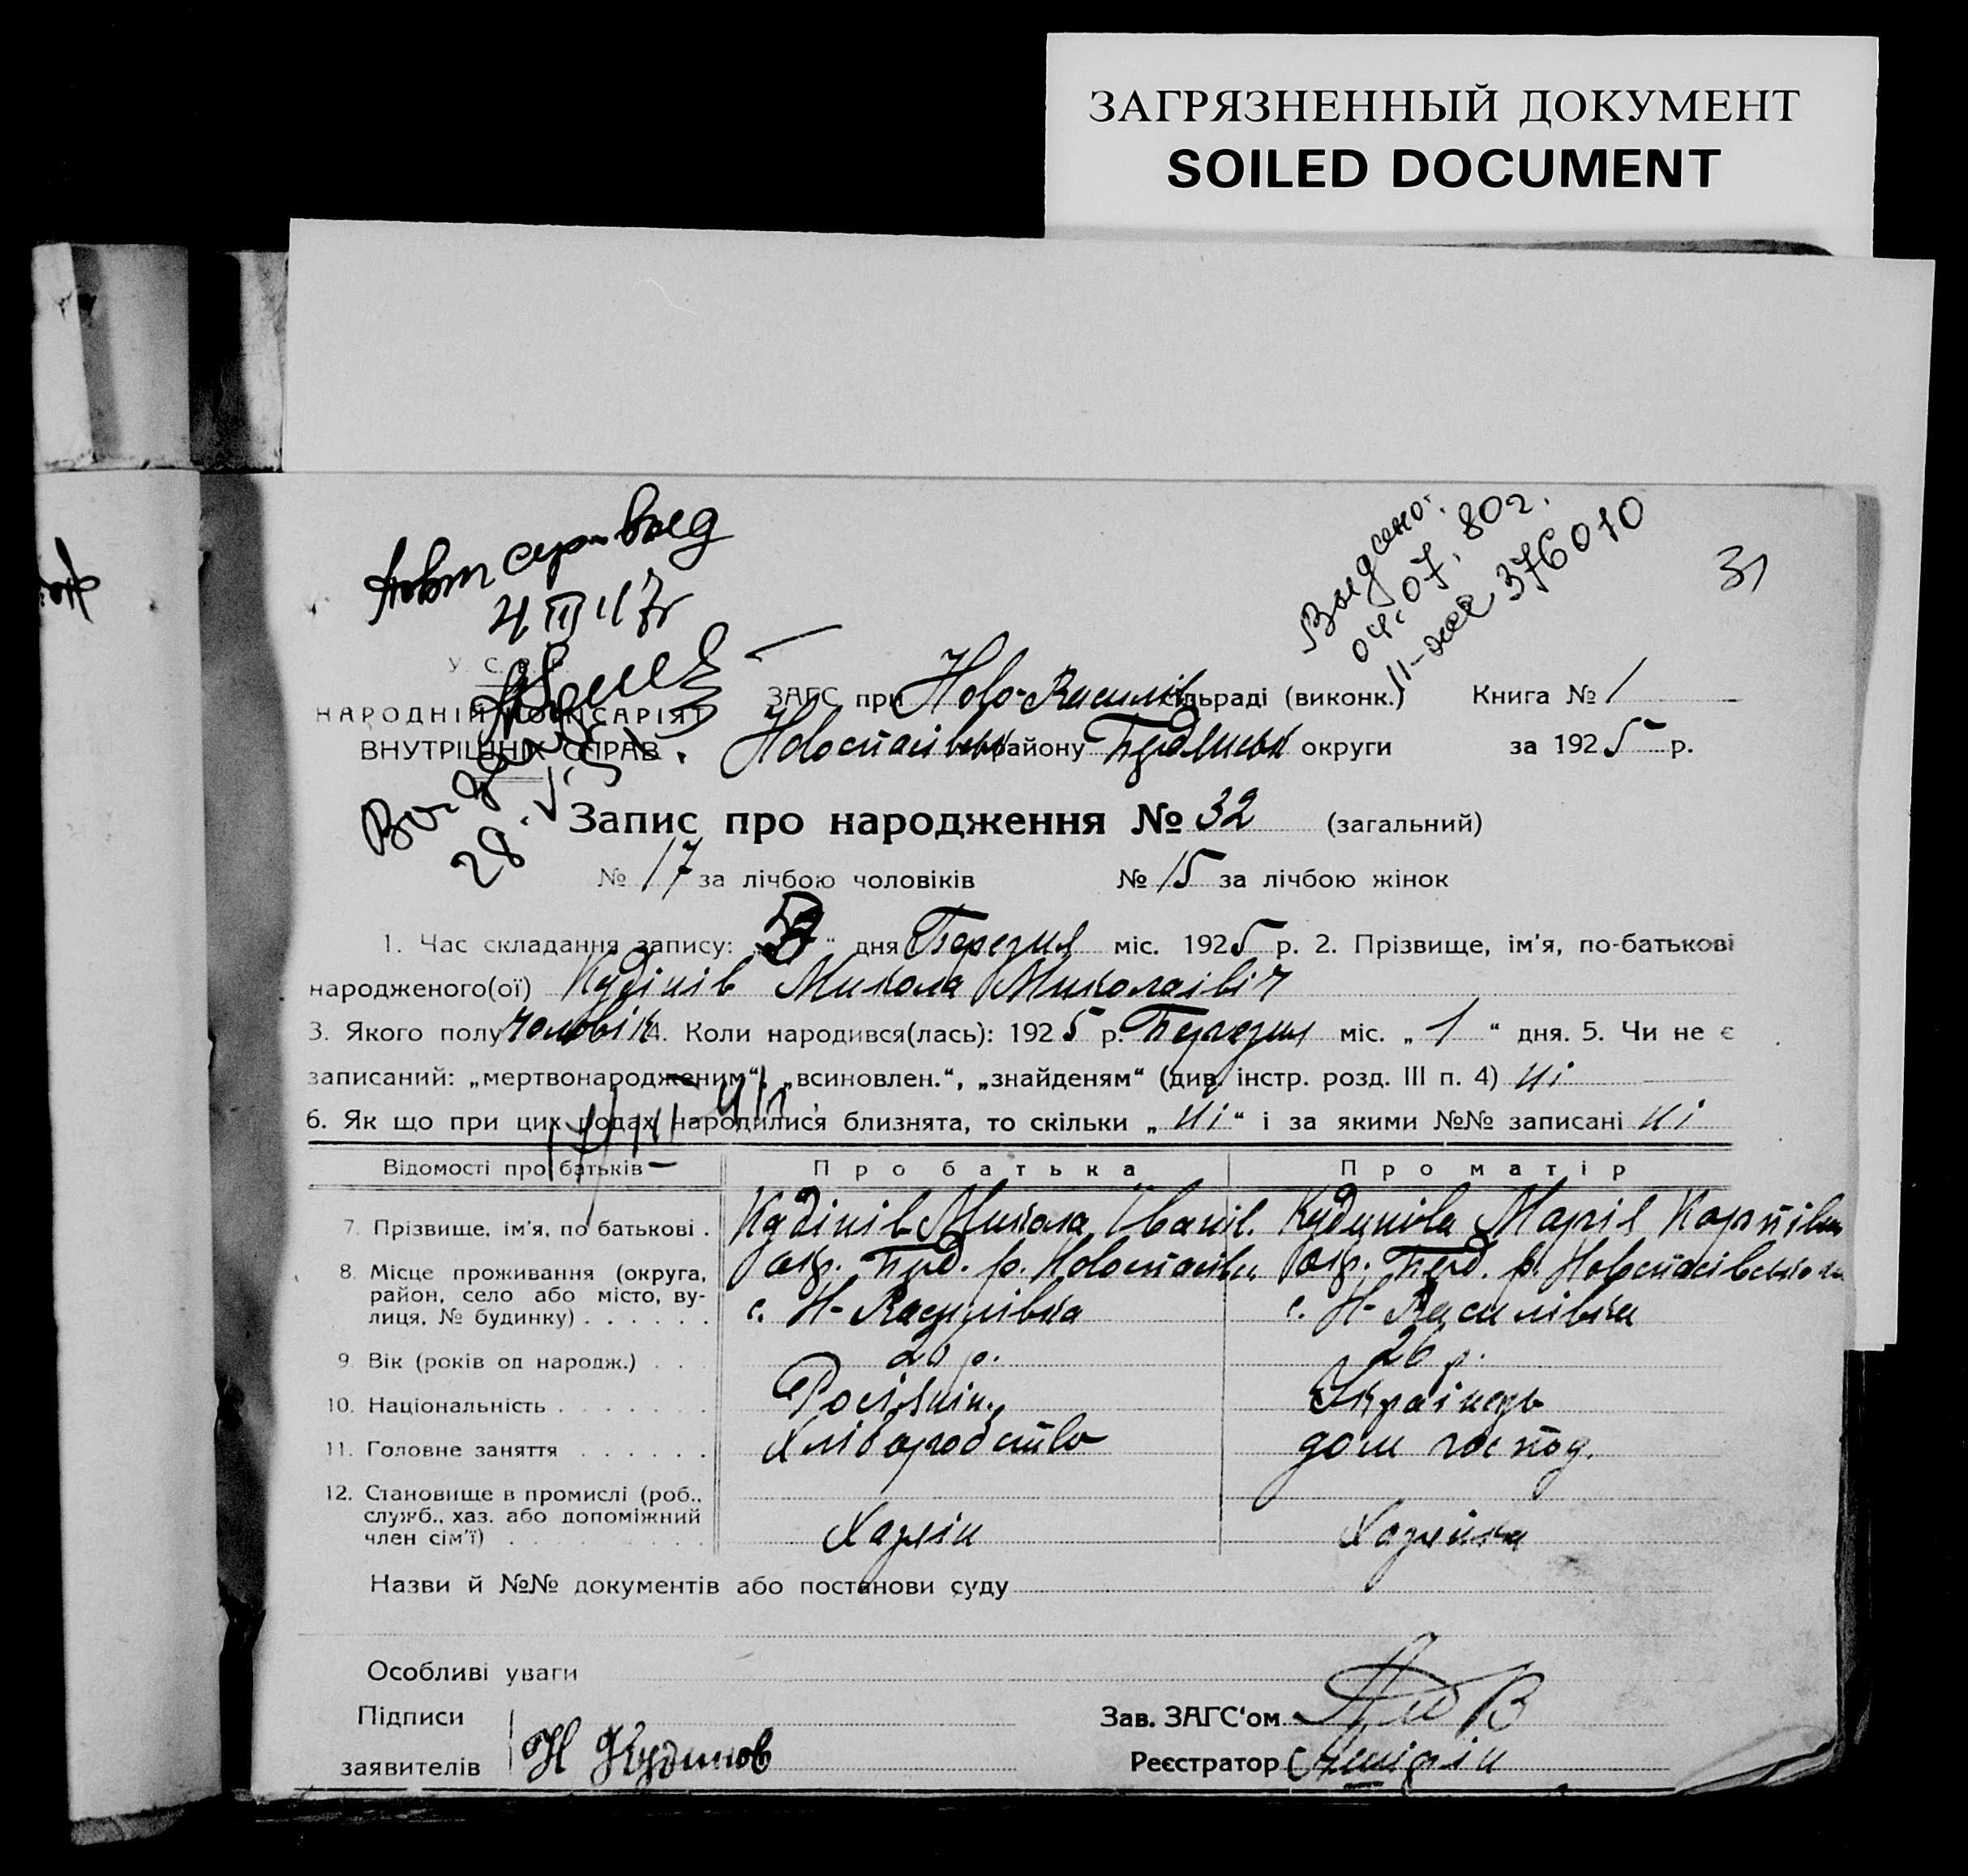 ЗАГРЯЗНЕННЫЙ ДОКУМЕНТ
SOILED DOCUMENT
31
Выдано.
04. 07. 80г.
376010
У. С. Р. Р.
НАРОДНІЙ КОМІСАРІЯТ
ВНУТРІШНІХ СПРАВ.
ЗАГС при Ново-Василів сільраді (виконк.) Книга № 1
Новоспасівськ району Бердянськ округи за 1925 р.
Запис про народження № 32 (загальний)
№ 17 за лічбою чоловіків № 15 за лічбою жінок
1. Час складання запису: „ “ дня Березня міс. 1925 р. 2. Прізвище, ім'я, по-батькові
народженого(ої) Кудінів Микола Миколаівіч
3. Якого полу чоловік 4. Коли народився(лась): 1925 р. Березня міс. „ 1 “ дня. 5. Чи не є
записаний: „мертвонародженим“, „всиновлен.“, „знайденям“ (див. інстр. розд. III п. 4) ні
6. Як що при цих родах народилися близнята, то скільки „ ні “ і за якими №№ записані ні
Відомості про батьків Про батька Про матір
7. Прізвище, ім'я, по батькові . Кудінів Микола Іванів. Кудинова Марія Карпівна
8. Місце проживання (округа, окр. Берд. р. Новоспасівськ окр. Берд. р. Новоспасівського
район, село або місто, ву- с. Н-Василівка с. Н-Василівка
лиця, № будинку) . . . . . .
9. Вік (років од народж.) . . 26 р. 26 р.
10. Національність . . . . . . . Росіянин Українець
11. Головне заняття . . . . . . Хліборобство дом господ.
12. Становище в промислі (роб.,
служб., хаз. або допоміжний Хазяїн Хазяйка
член сім'ї) . . . . . . . . .
Назви й №№ документів або постанови суду
Особливі уваги
Підписи Зав. ЗАГС'ом
заявителів Н Кудинов Реєстратор